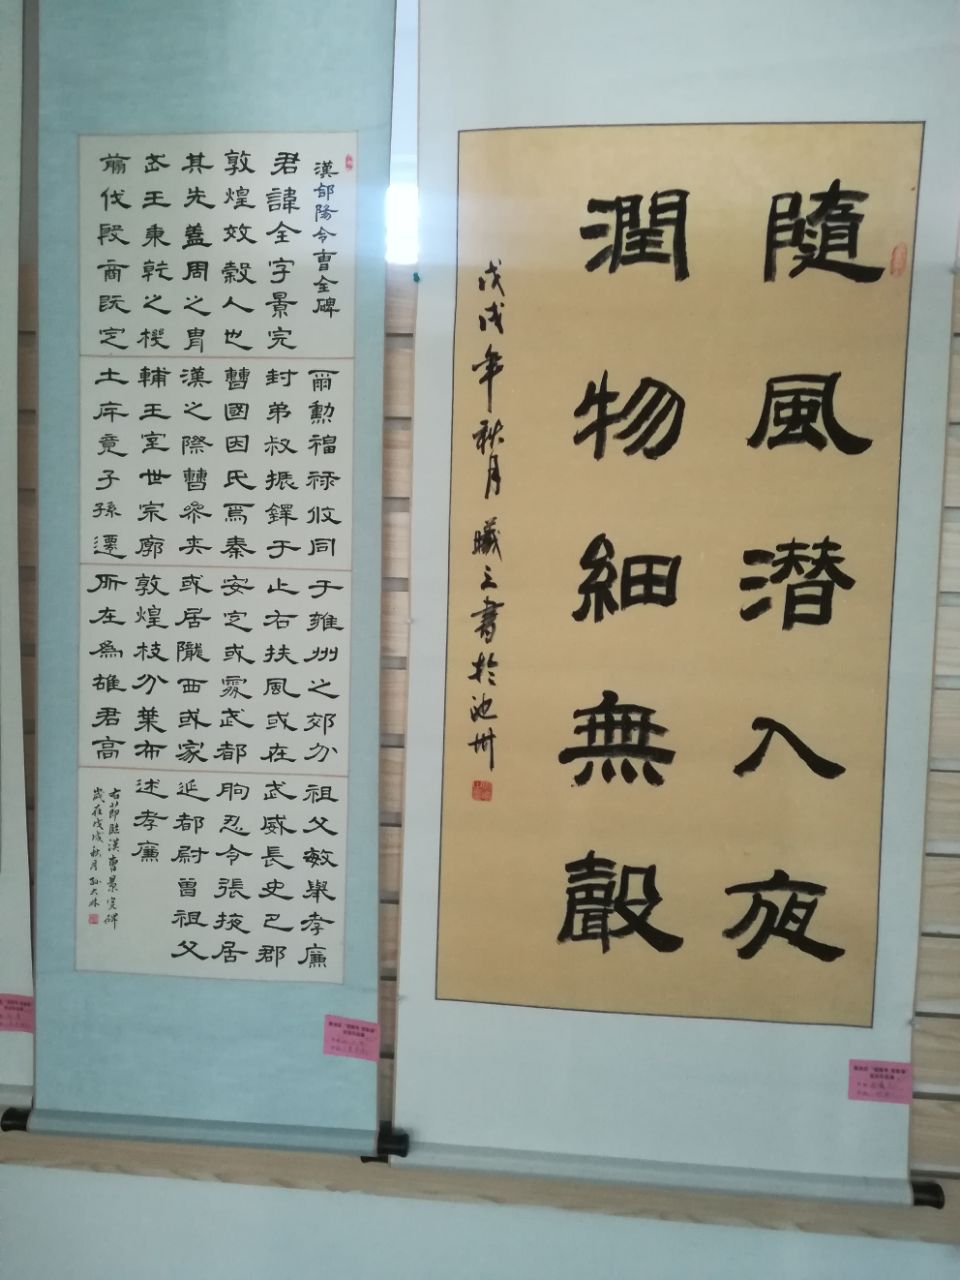 隨風潜入夜
潤物細無聲
戊戌年秋月曦之書於池州
漢郃陽令曹全碑
君諱全字景完
敦煌效穀人也
其先蓋周之胄
武王秉乾之機
翦伐殷商既定
爾勲福祿攸同
封弟叔振鐸于
曹國因氏焉秦
漢之際曹參夾
輔王室世宗廓
土斥竟子孫遷
于雍州之郊分
止右扶風或在
安定或處武都
或居隴西或家
敦煌枝分葉布
所在為雄君高
祖父敏舉孝廉
武威長史巴郡
朐忍令張掖居
延都尉曾祖父
述孝廉
右節臨漢曹景完碑
歲在戊戌秋月